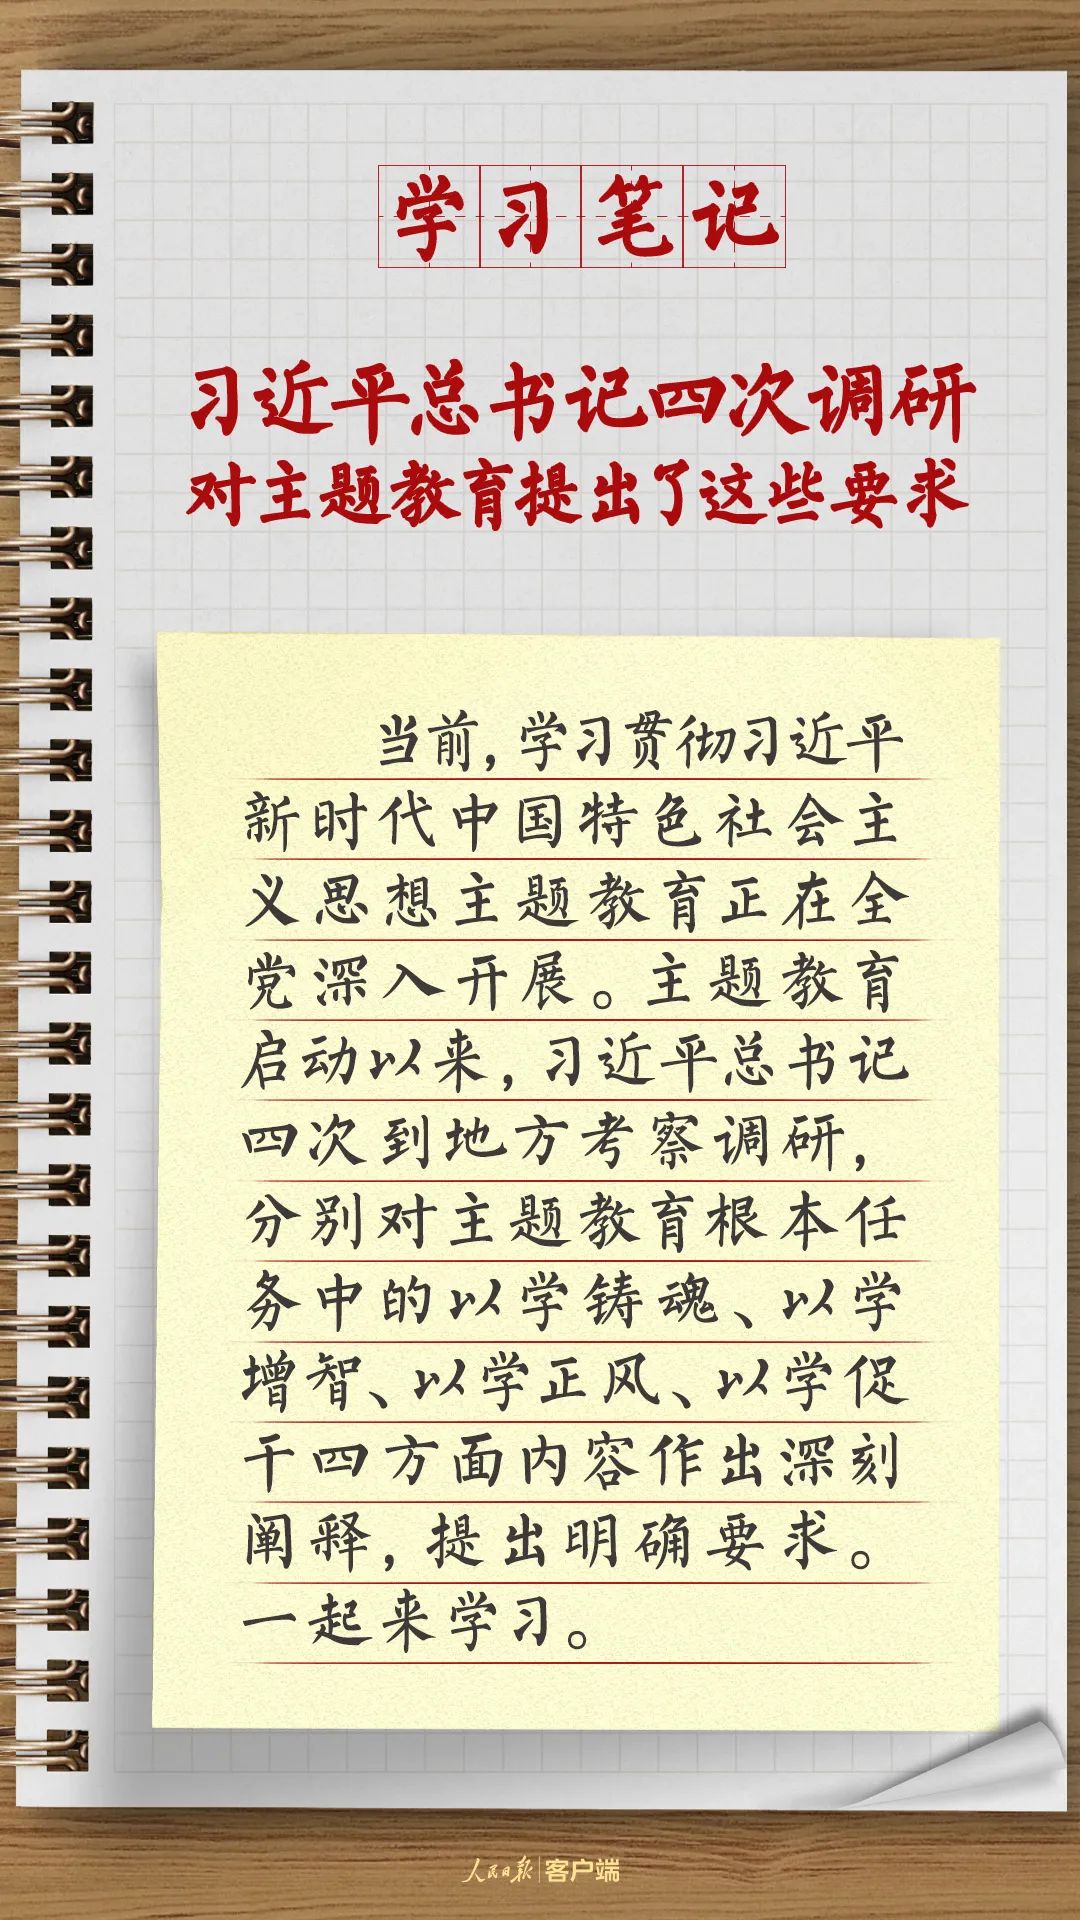 学习笔记
习近平总书记四次调研
对主题教育提出了这些要求
当前,学习贯彻习近平
新时代中国特色社会主
义思想主题教育正在全
党深入开展。主题教育
启动以来,习近平总书记
四次到地方考察调研,
分别对主题教育根本任
务中的以学铸魂、以学
增智、以学正风、以学促
干四方面内容作出深刻
阐释,提出明确要求。
一起来学习。
人民日报|客户端